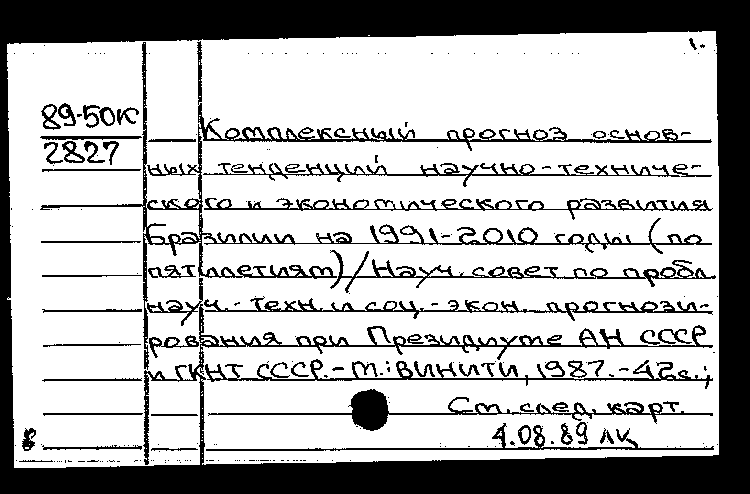 1.
89-50К
2827
Комплексный прогноз основ-
ных тенденций научно-техниче-
ского и экономического развития
Бразилии на 1991-2010 годы (по
пятилетиям)/Науч. совет по пробл.
науч.-техн. и соц.-экон. прогнози-
рования при Президиуме АН СССР
и ГКНТ СССР.-М.: ВИНИТИ, 1987.-42с.;
См. след. карт.
4.08.89 лк